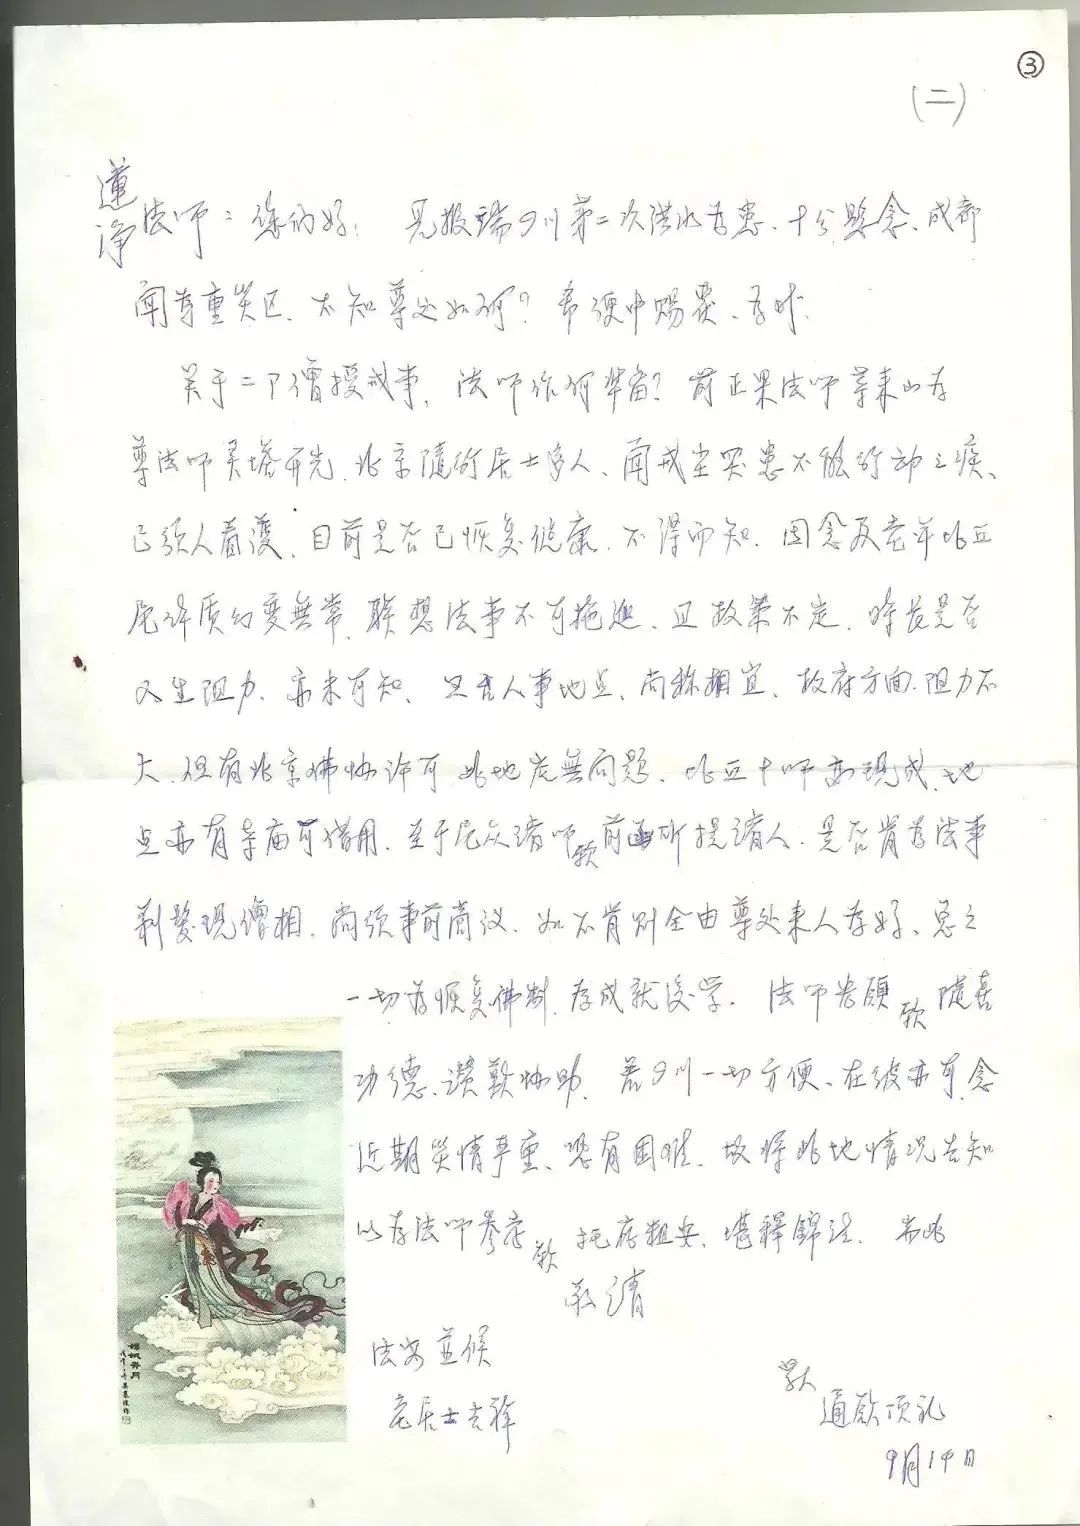 ③
(二)
蓮净法师：您们好！ 见报端四川第二次洪水为患、十分悬念、成都
闻为重灾区、不知尊处如何？希便中赐覆、为盼。
关于二下僧授戒事、法师作何准备？前正果法师等来山为
尊法师灵塔开光、北京随行居士多人、闻戒尘突患不能行动之疾、
已须人看護、目前是否已恢复健康、不得而知、因念及老年比丘
尼体质幻变無常、联想法事不可拖延、且政策不定、时长是否
又生阻力、亦未可知、 人事地点、尚称相宜、政府方面阻力不
大、但有北京佛协许可 此地定無问题、比丘十师亦现成、地
点亦有寺庙可借用、至于尼众诸师欵前函所提請人、是否肯为法事
剃髮现僧相、尚须事前商议、如不肯则全由尊处来人为好、总之
一切为恢复佛制、为成就後学、 法师发願欵隨喜
功德、讚歎协助、若四川一切方便、在彼亦可、念
近期災情严重、恐有困难、故将此地情况告知
以为法师参考 欵托庇粗安、堪释錦注、耑此
敬請
法安並候
定居士吉祥
學人
通欵顶礼
9月14日
嫦娥奔月